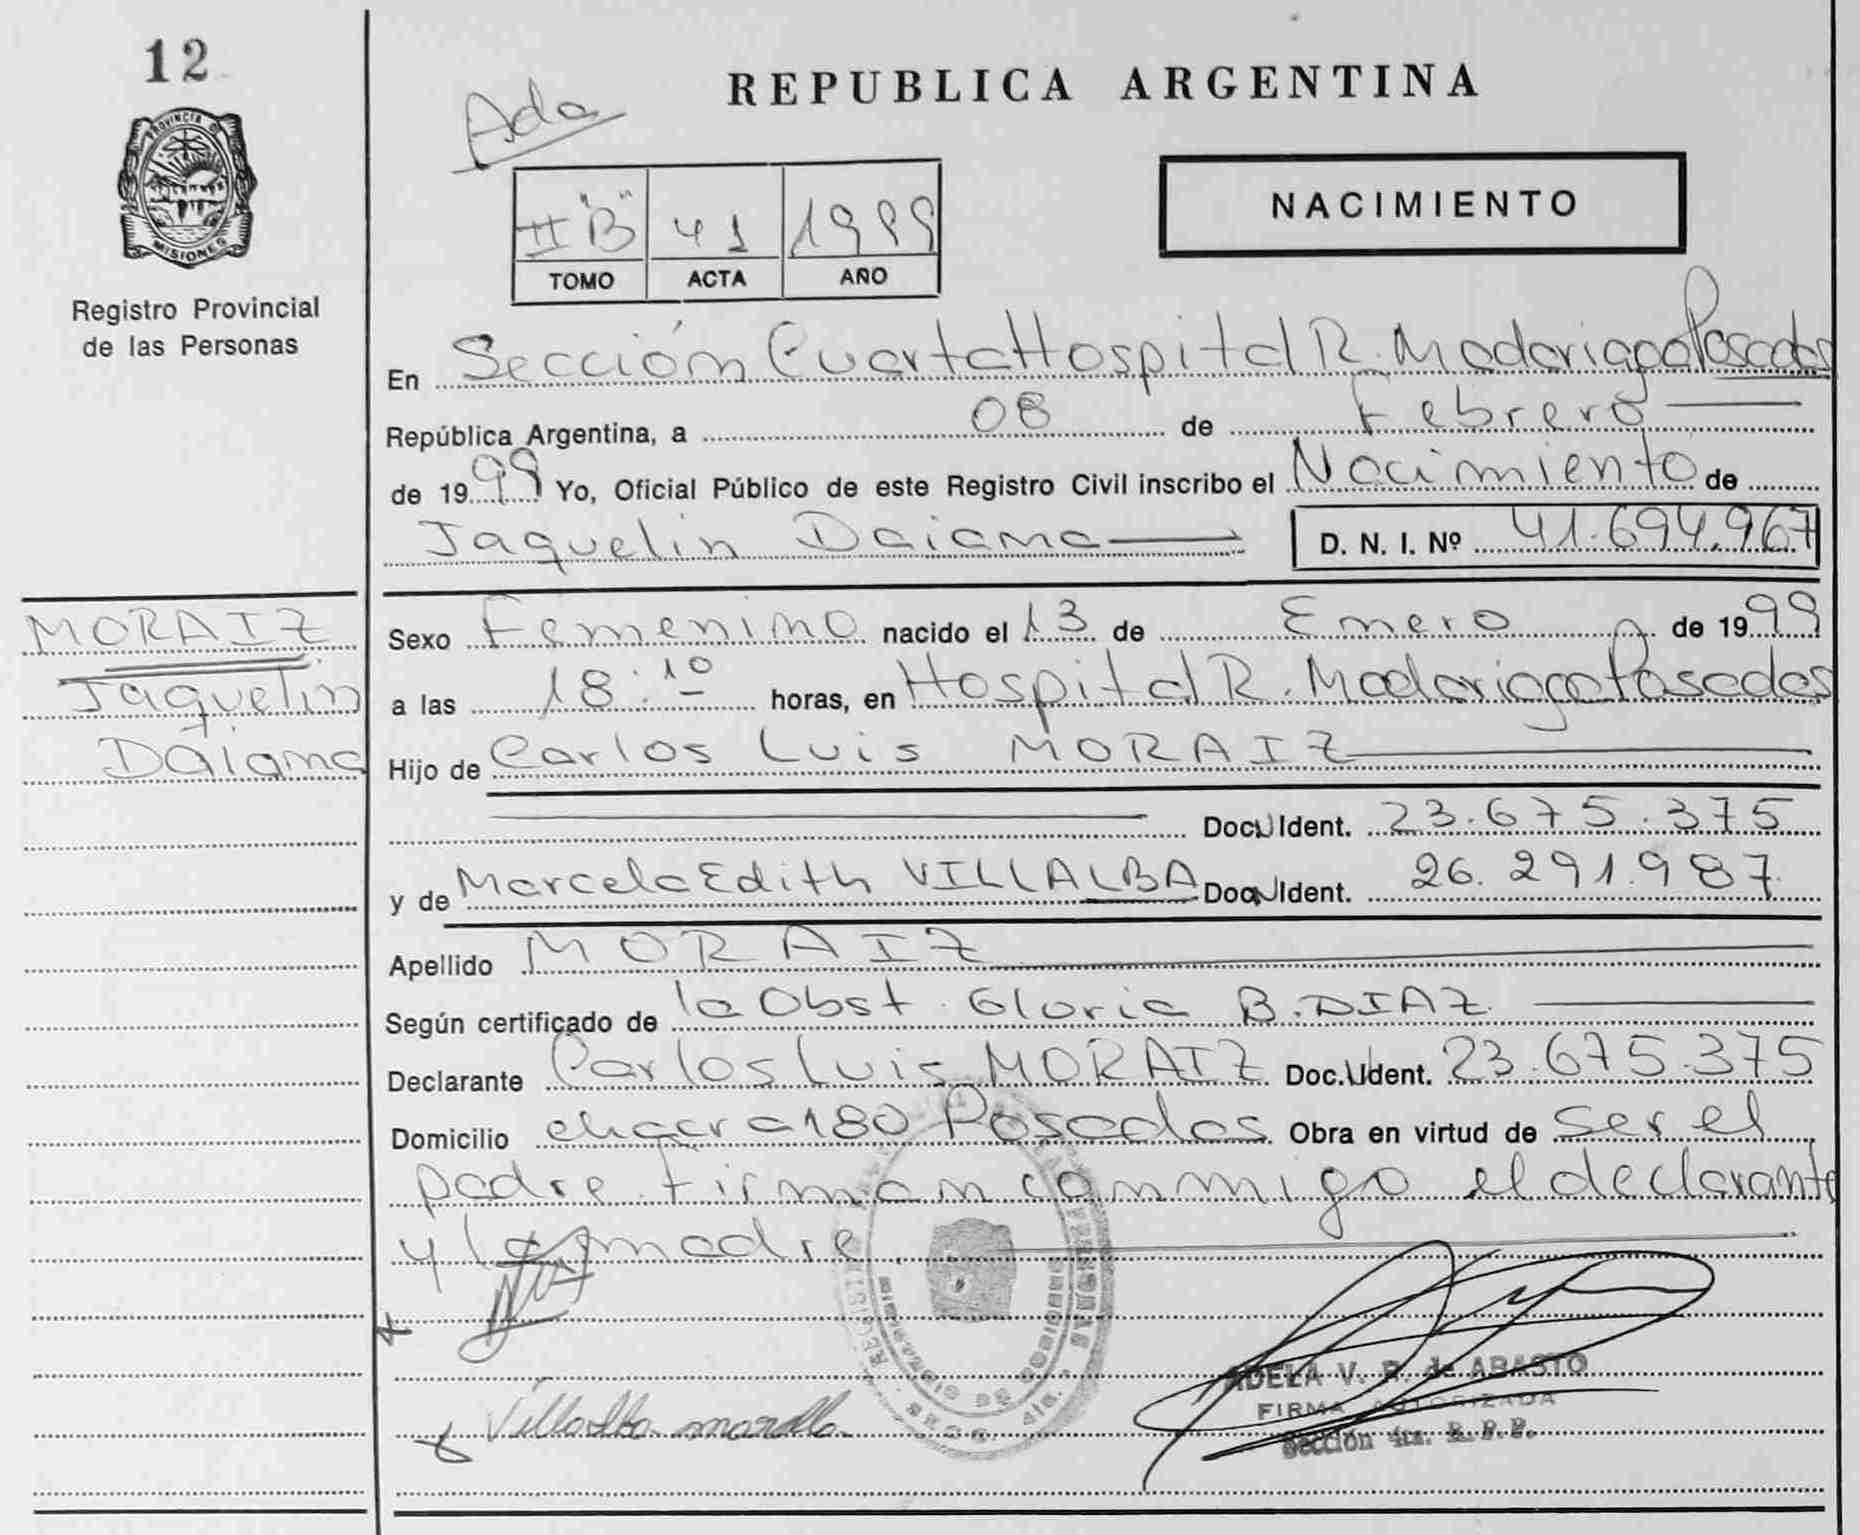 12
REPUBLICA ARGENTINA
Ada
PROVINCIA DE
MISIONES
Registro Provincial
de las Personas
II "B" 41 1999
TOMO ACTA AÑO
NACIMIENTO
En Sección Cuarta Hospital R. Madariaga Posadas
República Argentina, a 08 de Febrero
de 1999 Yo, Oficial Público de este Registro Civil inscribo el Nacimiento de
Jaquelin Daiana D. N. I. Nº 41.694.967
MORAIZ
Jaquelin
Daiana
Sexo Femenino nacido el 13 de Enero de 1999
a las 18:10 horas, en Hospital R. Madariaga Posadas
Hijo de Carlos Luis MORAIZ
Doc. Ident. 23.675.375
y de Marcela Edith VILLALBA Doc. Ident. 26.291.987
Apellido MORAIZ
Según certificado de la Obst. Gloria B. DIAZ
Declarante Carlos Luis MORAIZ Doc. Ident. 23.675.375
Domicilio chacra 180 Posadas Obra en virtud de ser el
padre. Firman conmigo el declarante
y la madre
Villalba
ADELA V. R. de ABASTO
FIRMA AUTORIZADA
Sección 4ta. R.P.P.